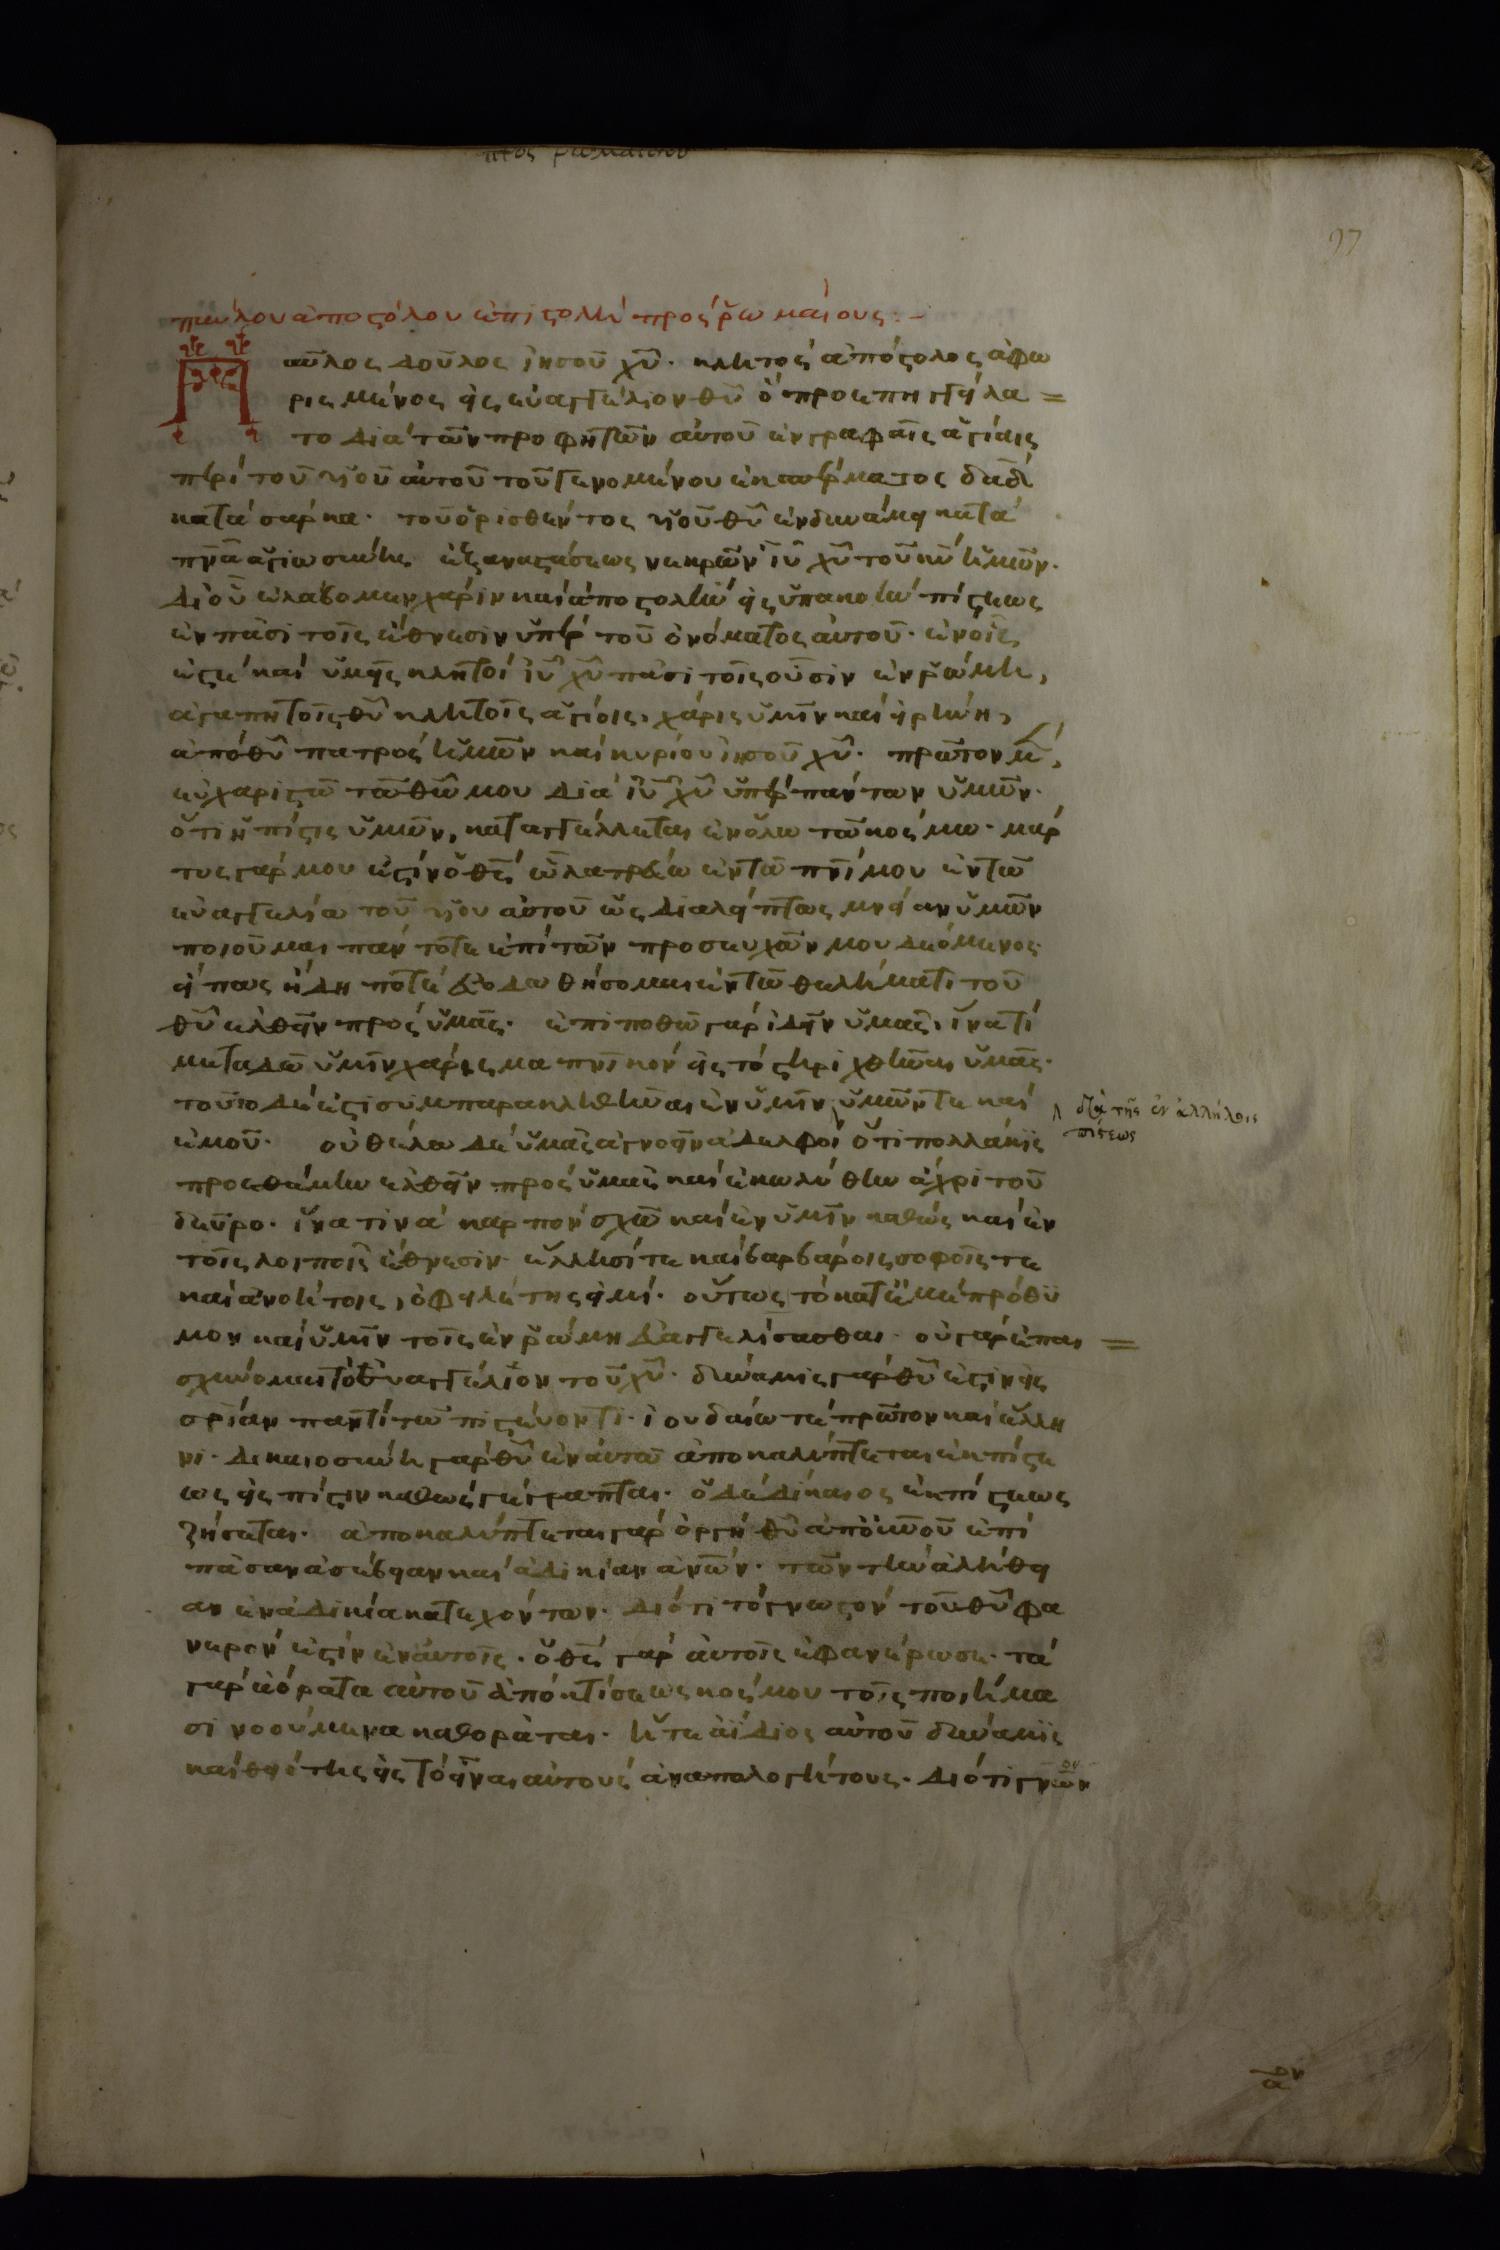 προς ρωμαιου
97
παύλου ἀποστόλου ἐπιστολὴ πρὸς ῥωμαίους:-
Παῦλος δοῦλος ἰησοῦ χῦ· κλητὸς ἀπόστολος ἀφω
ρισμένος εἰς εὐαγγέλιον θῦ ὃ προεπηγγείλα
το διὰ τῶν προφητῶν αὐτοῦ ἐν γραφαῖς ἁγίαις
περὶ τοῦ υἱοῦ αὐτοῦ τοῦ γενομένου ἐκ σπέρματος δαδ
κατὰ σάρκα· τοῦ ὁρισθέντος υἱοῦ θῦ ἐν δυνάμει κατὰ
πνα ἁγιωσύνης ἐξ αναστάσεως νεκρῶν ἰῦ χῦ τοῦ κυ ἡμῶν·
δι οὗ ἐλάβομεν χάριν καὶ ἀποστολὴν εἰς ὑπακοὴν πίστεως
ἐν πᾶσι τοῖς ἔθνεσιν ὑπὲρ τοῦ ὀνόματος αὐτοῦ· ἐν οἷς
ἐστὲ καὶ ὑμεῖς κλητοὶ ἰῦ χῦ πᾶσι τοῖς οὖσιν ἐν ῥώμη,
ἀγαπητοῖς θῦ κλητοῖς ἁγίοις, χάρις ὑμῖν καὶ εἰρήνη,
ἀπὸ θῦ πατρὸς ἡμῶν καὶ κυρίου ἰησοῦ χῦ· πρῶτον μ,
εὐχαριστῶ τῶ θῶ μου διὰ ἰῦ χῦ ὑπὲρ πάντων ὑμῶν·
ὅτι ἡ πίστις ὑμῶν, καταγγέλλεται ἐν ὅλω τῶ κόσμω· μάρ
τυς γάρ μου ἐστὶν ὁ θς ὧ λατρεύω ἐν τῶ πνί μου ἐν τῶ
εὐαγγελίω τοῦ υἱοῦ αὐτοῦ ὡς ἀδιαλείπτως μνείαν ὑμῶν
ποιοῦμαι πάντοτε ἐπὶ τῶν προσευχῶν μου δεόμενος·
εἴπως ἤδη ποτὲ εὐοδωθήσομαι ἐν τῶ θελήματι τοῦ
θῦ ἐλθεῖν πρὸς ὑμᾶς· ἐπιποθῶ γὰρ ἰδεῖν ὑμᾶς, ἵνα τί
μεταδῶ ὑμῖν χάρισμα πνικὸν εἰς τὸ στηριχθῆναι ὑμᾶς·
τοῦτο δέ ἐστι συμπαρακληθῆναι ἐν ὑμῖν ὑμῶν τε καὶ
διὰ τῆς ἐν ἀλλήλοις
πίστεως
ἐμοῦ· οὐ θέλω δὲ ὑμᾶς ἀγνοεῖν ἀδελφοὶ ὅτι πολλάκις
προεθέμην ἐλθεῖν πρὸς ὑμᾶς καὶ ἐκωλύθην ἄχρι τοῦ
δεῦρο· ἵνα τινὰ καρπὸν σχῶ καὶ ἐν ὑμῖν καθὼς καὶ ἐν
τοῖς λοιποῖς ἔθνεσιν· ἕλλησί τε καὶ βαρβάροις σοφοῖς τε
καὶ ἀνοήτοις, ὀφειλέτης εἰμί· οὕτως τὸ κατ ἐμὲ πρόθυ
μον καὶ ὑμῖν τοῖς ἐν ῥώμη εὐαγγελίσασθαι· οὐ γὰρ ἐπαι
σχύνομαι τὸ εὐαγγέλιον τοῦ χῦ· δύναμις γὰρ θῦ ἐστὶν εἰς
σρίαν παντὶ τῶ πιστεύοντι· ἰουδαίω τὲ πρῶτον καὶ ἕλλη
νι· δικαιοσύνη γὰρ θῦ ἐν αὐτῶ ἀποκαλύπτεται ἐκ πίστε
ως εἰς πίστιν καθὼς γέγραπται· ὁ δὲ δίκαιος ἐκ πίστεως
ζήσεται· ἀποκαλύπτεται γὰρ ὀργὴ θῦ ἀπ οὐνοῦ ἐπὶ
πᾶσαν ἀσέβειαν καὶ ἀδικίαν ἀνῶν· τῶν τὴν ἀλήθει
αν ἐν ἀδικία κατεχόντων· διότι τὸ γνωστὸν τοῦ θῦ φα
νερόν ἐστὶν ἐν αὐτοῖς· ὁ θς γὰρ αὐτοῖς ἐφανέρωσε· τὰ
γὰρ ἀόρατα αὐτοῦ ἀπὸ κτίσεως κόσμου τοῖς ποιήμα
σι νοούμενα καθορᾶται· ἥ τε ἀΐδιος αὐτοῦ δύναμις
καὶ θειότης εἰς τὸ εἶναι αὐτοὺς ἀναπολογήτους· διότι γνῶν